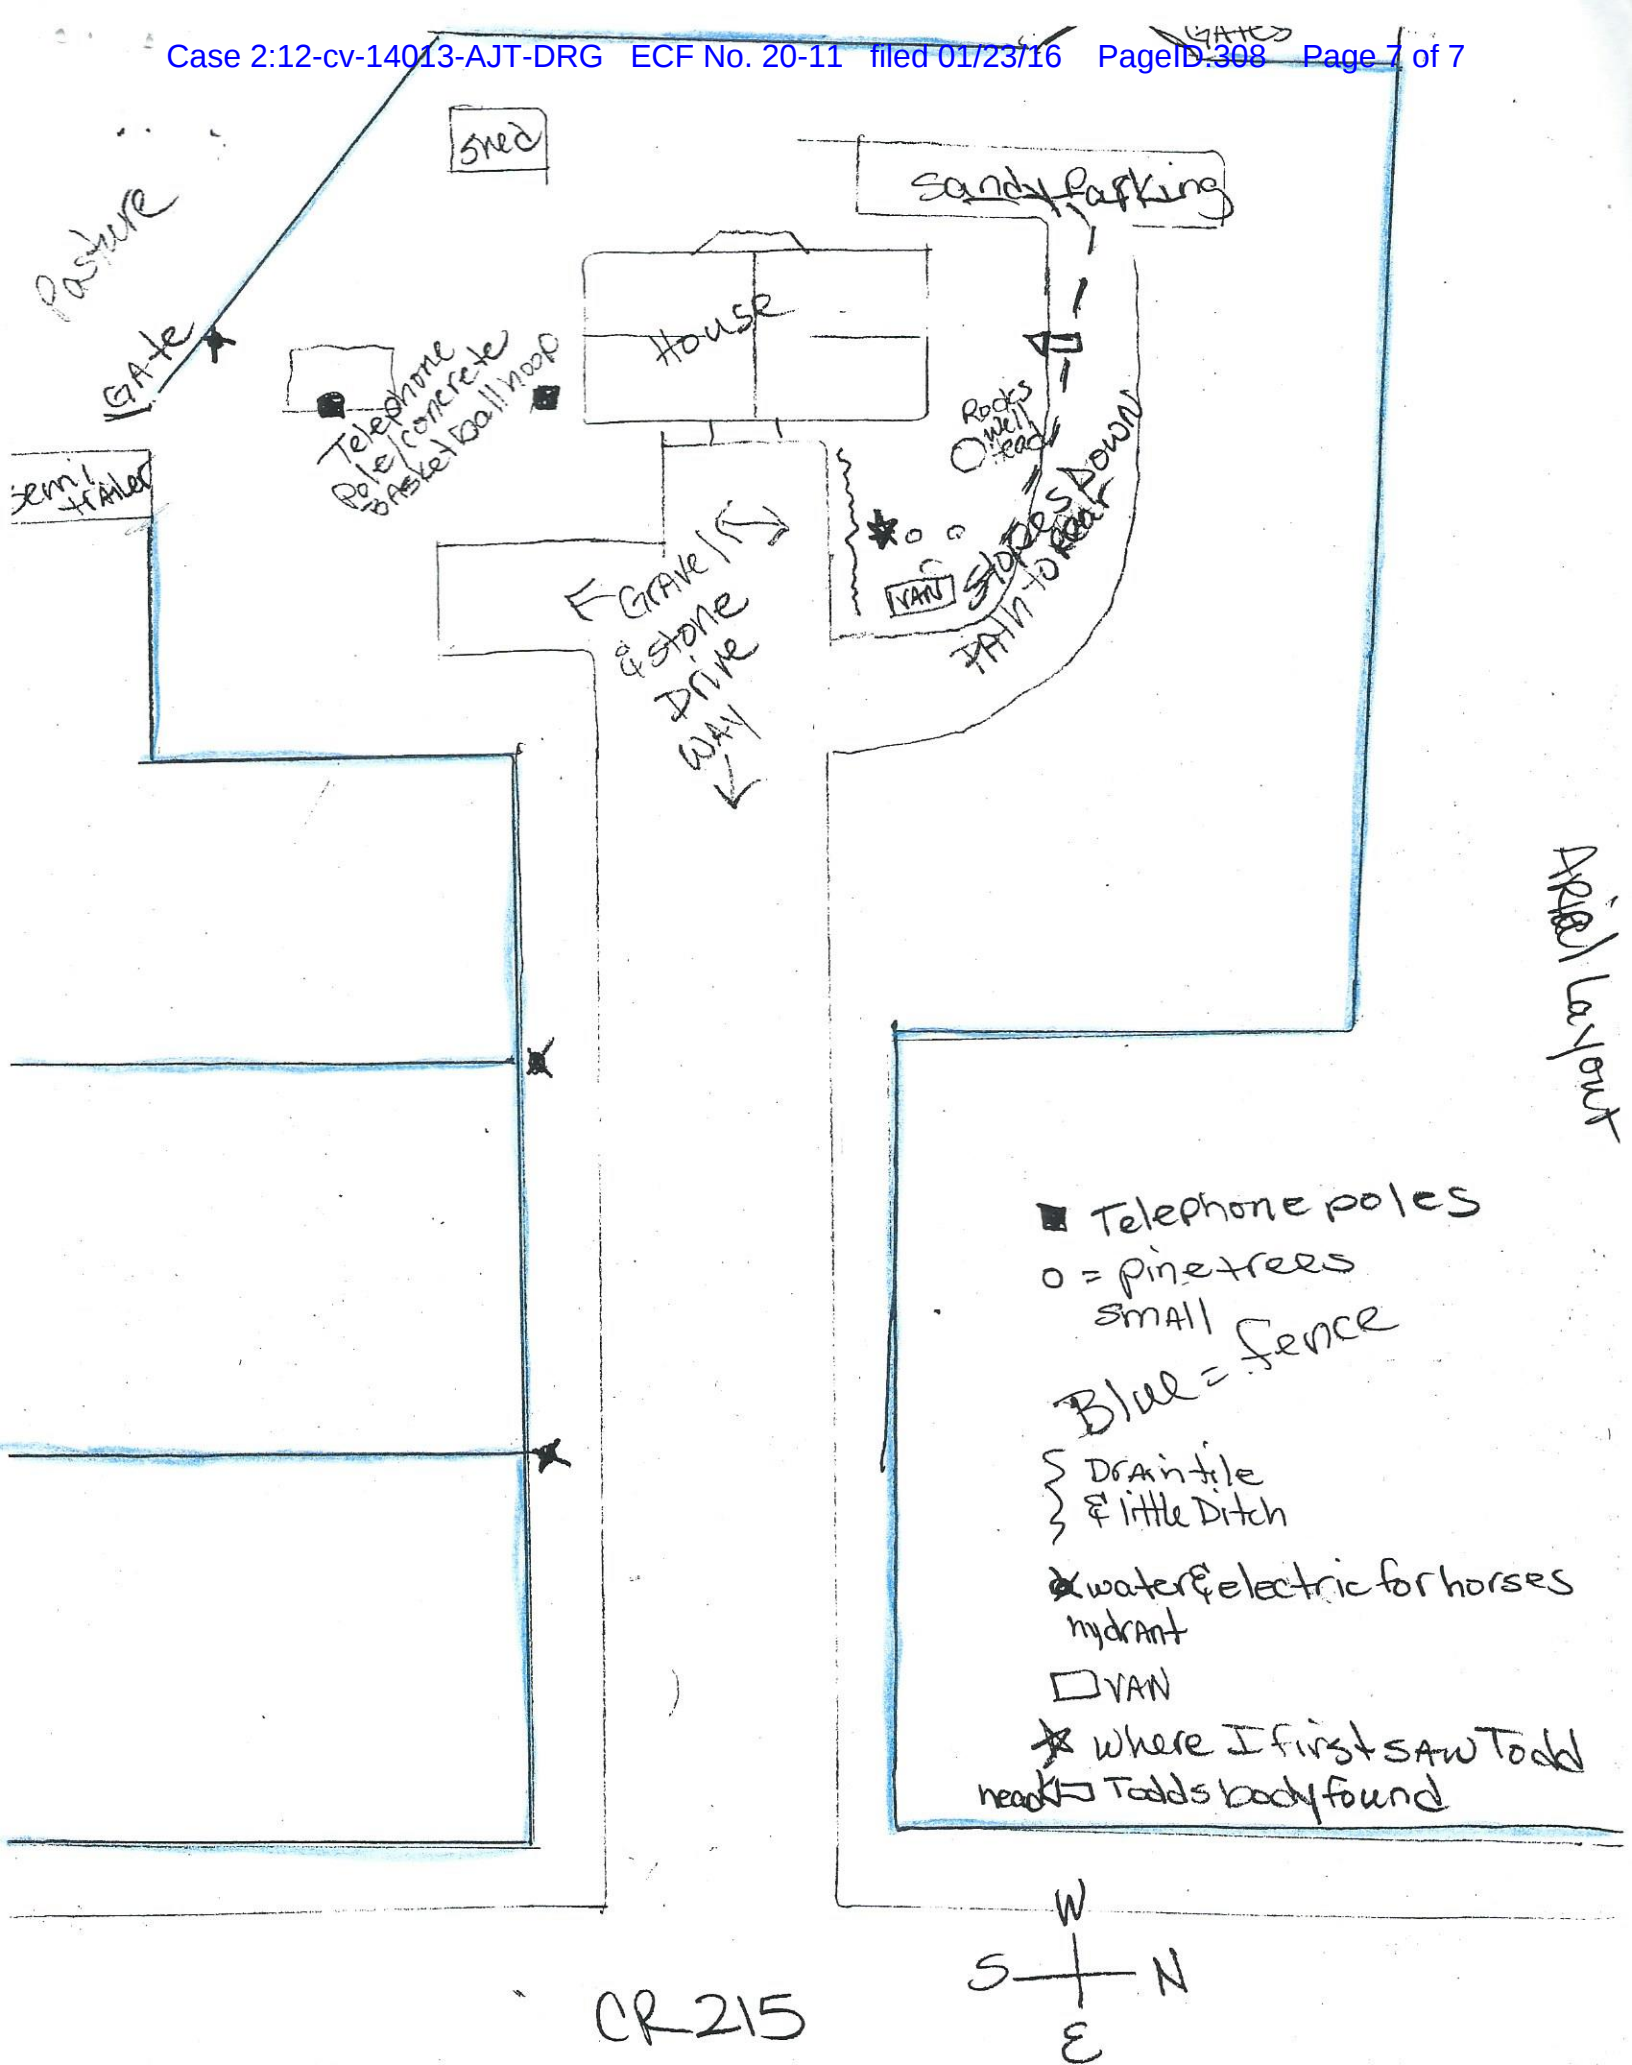 Case 2:12-cv-14013-AJT-DRG ECF No. 20-11 filed 01/23/16 PageID.308 Page 7 of 7
GATES
Shed
Sandy Parking
Pasture
House
GAte
Telephone
Pole/concrete
BAsketball hoop
Rocks
Well
Head
Semi
trAiler
Slopes Down
PAth to Rear
VAN
GrAvel
& stone
Drive
WAy
ARial Layout
Telephone poles
o = pine trees
smAll
Blue = fence
DrAin tile
& little Ditch
water & electric for horses
hydrAnt
VAN
where I first sAw Todd
head Todds body found
W
S N
E
CR 215